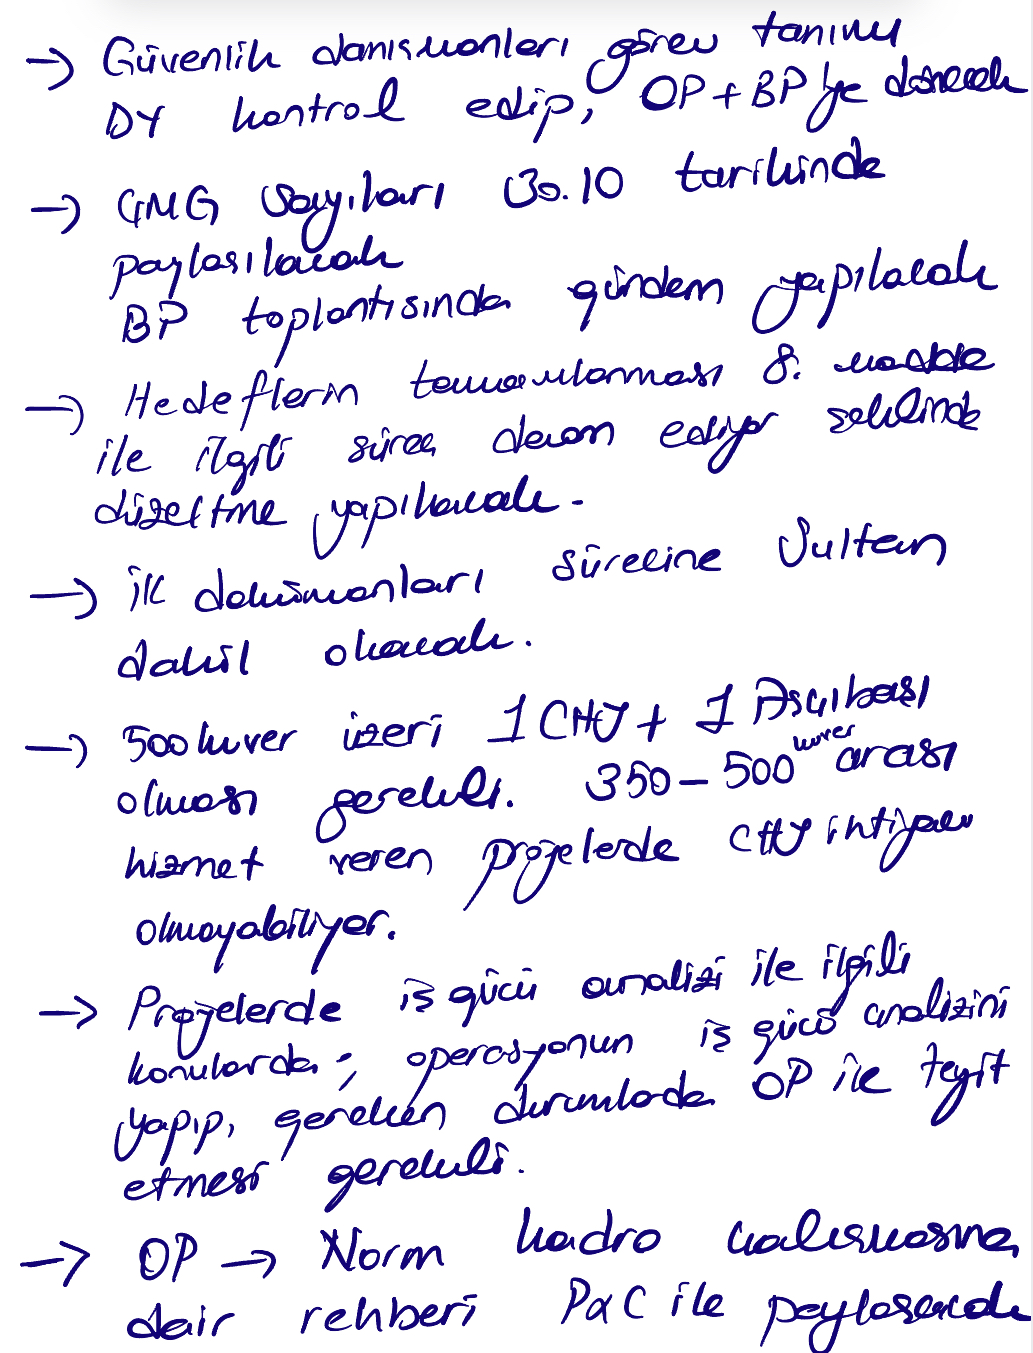 → Güvenlik danışmanları görev tanımı
DY kontrol edip, OP + BP'ye dönecek
→ GMG sayıları 30.10 tarihinde
paylaşılacak
BP toplantısında gündem yapılacak
→ Hedeflerin tamamlanması 8. madde
ile ilgili süreç devam ediyor şeklinde
düzeltme yapılacak.
→ İK dokümanları sürecine Sultan
dahil olacak.
→ 500 kuver üzeri 1 CHY + 1 Aşçıbaşı
olması gerekli. 350 - 500 kuver arası
hizmet veren projelerde CHY ihtiyacı
olmayabiliyor.
→ Projelerde iş gücü analizi ile ilgili
konularda; operasyonun iş gücü analizini
yapıp, gereken durumlarda OP ile teyit
etmesi gerekli.
→ OP → Norm kadro çalışmasına
dair rehberi P&C ile paylaşacak